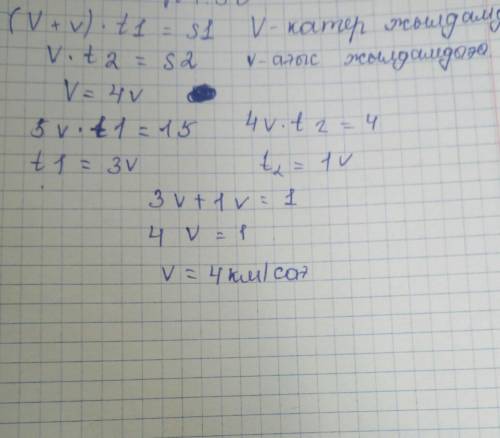 (V + v) · t1 = s1 V - катер жылдамд
v · t2 = s2 v - ағыс жылдамдығы
V = 4v
5v · t1 = 15 4v · t2 = 4
t1 = 3v t2 = 1v
3v + 1v = 1
4 v = 1
v = 4км/сағ